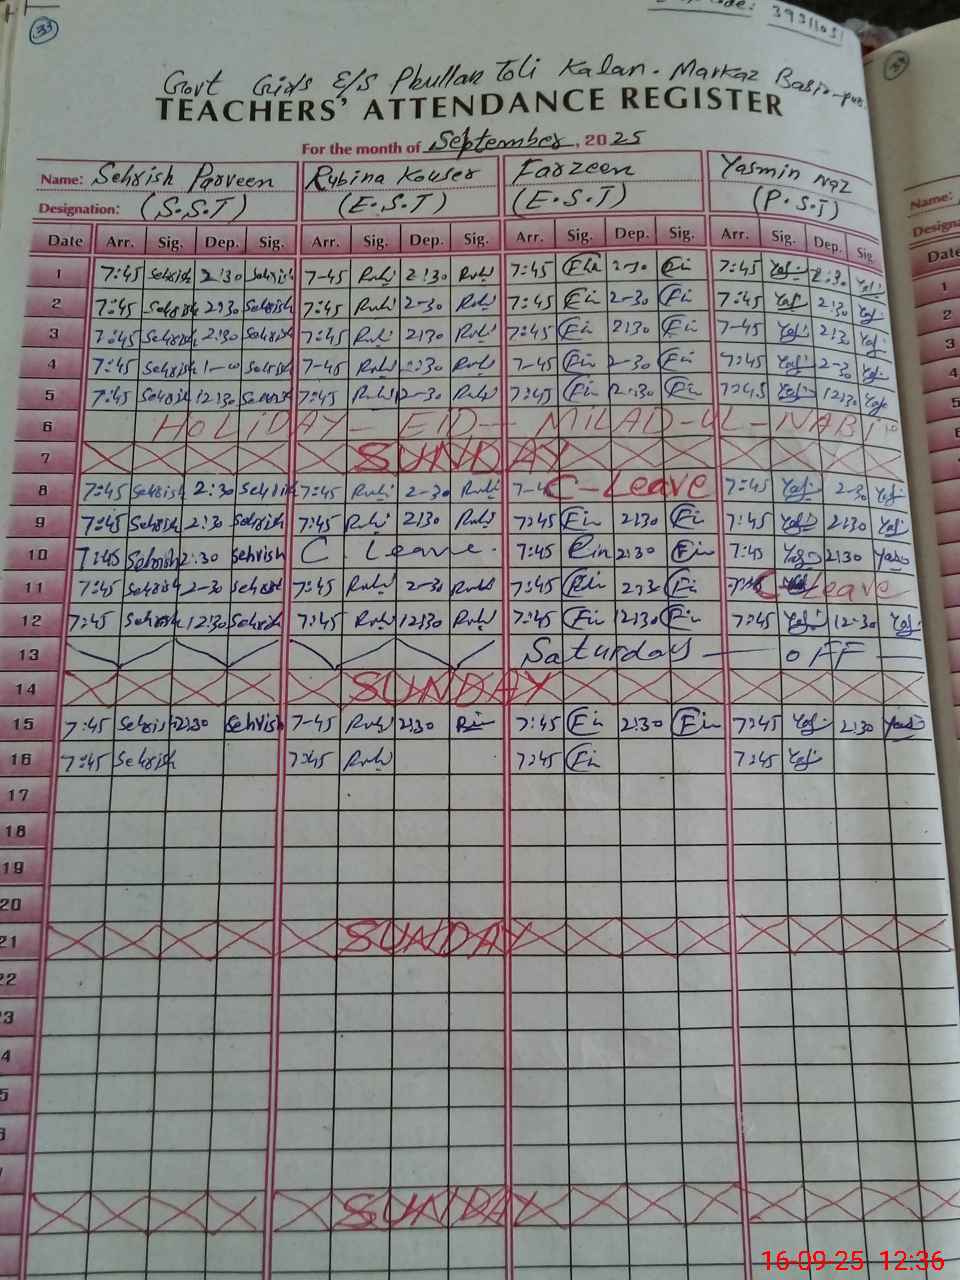 33
39311051
Govt Girls E/S Phullan Toli Kalan. Markaz Basir-pur.
TEACHERS' ATTENDANCE REGISTER
For the month of September, 2025
Name: Sehrish Parveen Rubina Kouser Farzeen Yasmin naz
Designation: (S.S.T) (E.S.T) (E.S.T) (P.S.T)
Date Arr. Sig. Dep. Sig. Arr. Sig. Dep. Sig. Arr. Sig. Dep. Sig. Arr. Sig. Dep. Sig.
1 7:45 Sehrish 2:30 Sehrish 7-45 Rubi 2:30 Rubi 7:45 2-30 7:45 Yas 2:30 Yas
2 7:45 Sehrish 2:30 Sehrish 7:45 Rubi 2-30 Rubi 7:45 2-30 7:45 Yas 2:30 Yas
3 7:45 Sehrish 2:30 Sehrish 7:45 Rubi 2:30 Rubi 7:45 2:30 7-45 Yas 2:30 Yas
4 7:45 Sehrish Sehrish 7-45 Rubi 2:30 Rubi 7-45 2-30 7:45 Yas 2-30 Yas
5 7:45 Sehrish 12:30 Sehrish 7:45 Rubi 12-30 Rubi 7:45 12:30 7:45 Yas 12:30 Yas
6 HOLIDAY - EID - MILAD-UL-NABI
7 SUNDAY
8 7:45 Sehrish 2:30 Sehrish 7:45 Rubi 2-30 Rubi 7-4 C-Leave 7:45 Yas 2-30 Yas
9 7:45 Sehrish 2:30 Sehrish 7:45 Rubi 2:30 Rubi 7:45 2:30 7:45 Yas 2:30 Yas
10 7:45 Sehrish 2:30 Sehrish C. Leave. 7:45 2:30 7:45 Yas 2:30 Yas
11 7:45 Sehrish 2-30 Sehrish 7:45 Rubi 2-30 Rubi 7:45 2:30 C Leave
12 7:45 Sehrish 12:30 Sehrish 7:45 Rubi 12:30 Rubi 7:45 12:30 7:45 Yas 12-30 Yas
13 Saturday — OFF —
14 SUNDAY
15 7:45 Sehrish 2:30 Sehrish 7-45 Rubi 2:30 7:45 2:30 7:45 Yas 2:30 Yas
16 7:45 Sehrish 7:45 Rubi 7:45 7:45 Yas
17
18
19
20
21 SUNDAY
22
3
4
5
SUNDAY
34
Name:
Designa
Date
1
2
3
4
5
6
16-09-25 12:36